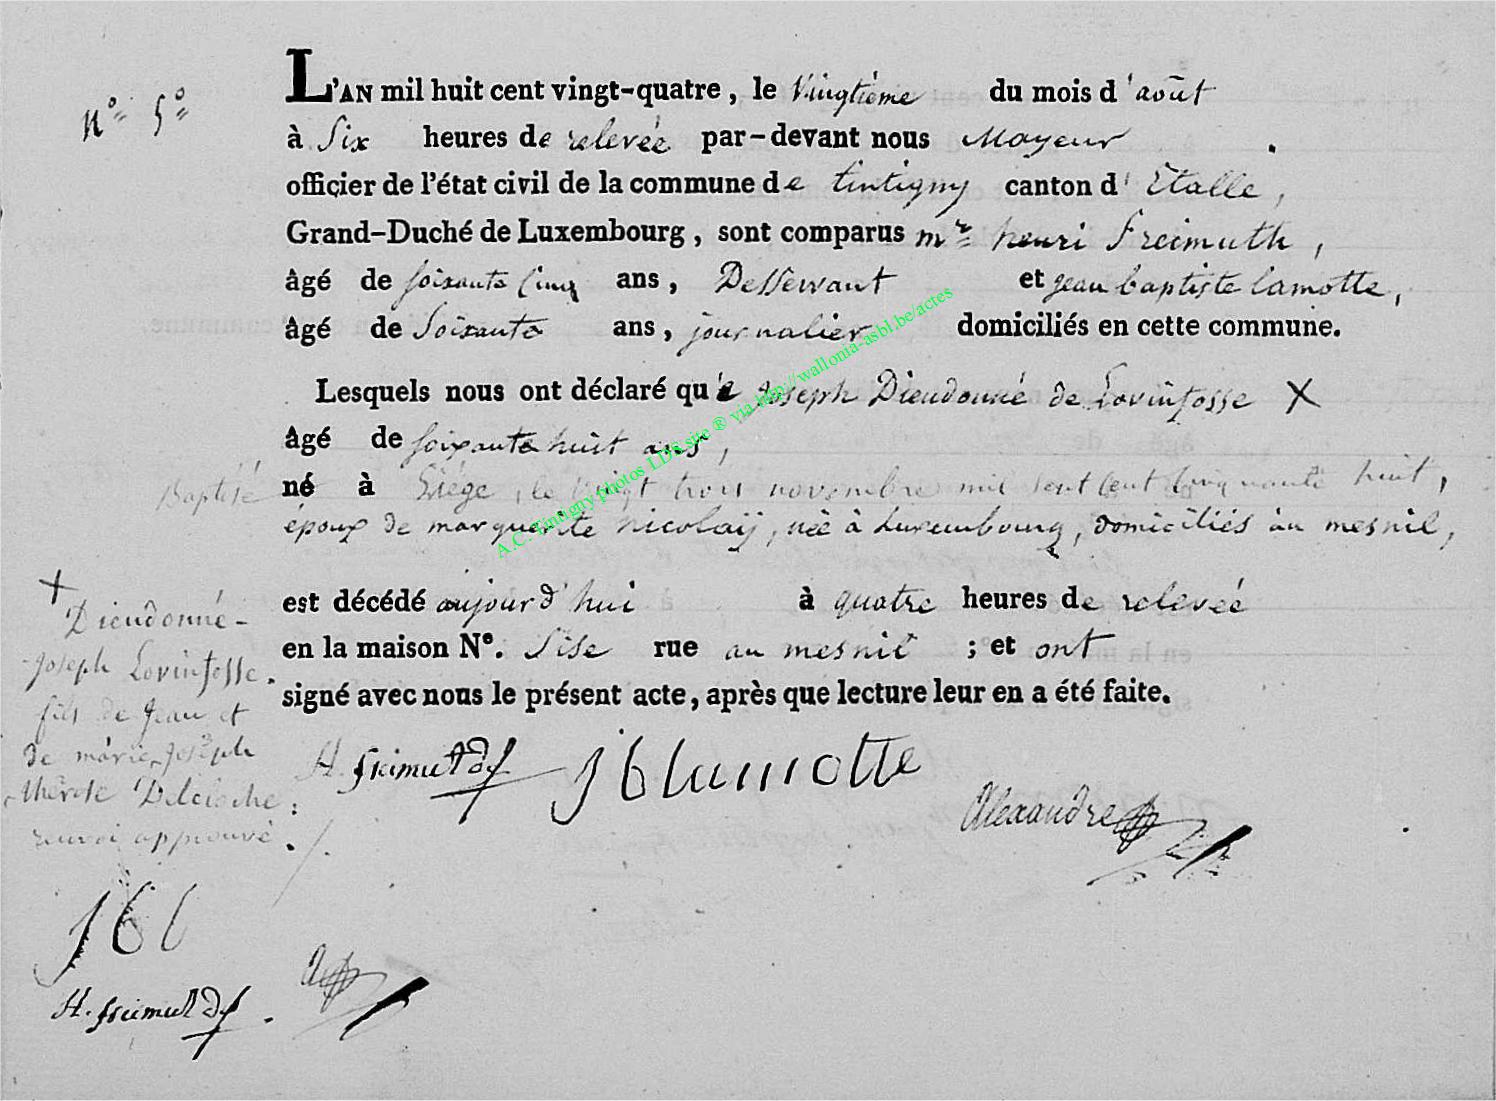 N° 5°
L'AN mil huit cent vingt-quatre, le Vingtième du mois d'août
à Six heures de relevée par-devant nous Mayeur
officier de l'état civil de la commune de tintigny canton d'Etalle,
Grand-Duché de Luxembourg, sont comparus mr henri Freimuth,
âgé de soixante cinq ans, Desservant et jean baptiste lamotte,
âgé de Soixante ans, journalier domiciliés en cette commune.
Lesquels nous ont déclaré que Joseph Dieudonné de Lovinfosse X
âgé de soixante huit ans,
Baptisé né à Liége, le vingt trois novembre mil sept cent cinquante huit,
époux de marguerite nicolaÿ, née à Luxembourg, domiciliés au mesnil,
est décédé aujourd'hui à quatre heures de relevée
en la maison N°. Sise rue au mesnil ; et ont
signé avec nous le présent acte, après que lecture leur en a été faite.
X Dieudonné-
Joseph Lovinfosse.
fils de Jean et
de marie Joseph
thérèse Delcloche;
renvoi approuvé.
H. freimuth jblamotte
Alexandre
jbl
H. freimuth
A.C. Tintigny photos LDS site ® via http://wallonia-asbl.be/actes